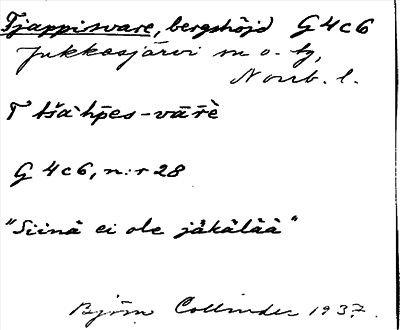 Tjappisvare, bergshöjd G4c6
Jukkasjärvi sn o. tg,
Norrb. l.
T tša`hpes-vārē
G 4c6, n:r 28
"Siinä ei ole jäkälää"
Björn Collinder 1937.